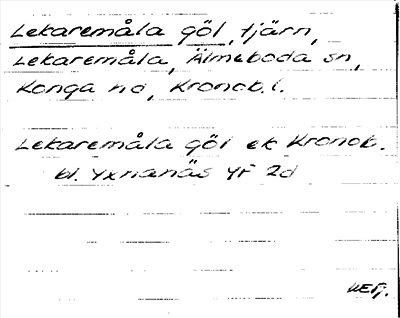 Lekaremåla göl, tjärn,
Lekaremåla, Älmeboda sn,
Konga hd, Kronob. l.
Lekaremåla göl ek Kronob.
bl. Yxnanäs Yf 2d